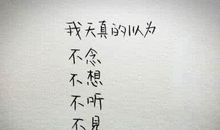 我天真的以为
不念
不想
不听
不見